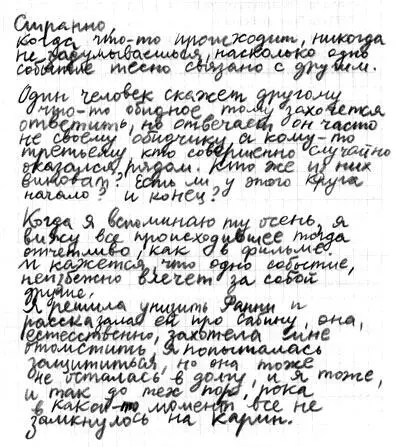 Странно,
Когда что-то происходит, никогда
не задумываешься, насколько одно
событие тесно связано с другим.
Один человек скажет другому
что-то обидное, тому захочется
ответить, но отвечает он часто
не своему обидчику, а кому-то
третьему, кто совершенно случайно
оказался рядом. Кто же из них
виноват? Есть ли у этого круга
начало? и конец?
Когда я вспоминаю ту осень, я
вижу всё происходившее тогда
отчетливо, как в фильме.
И кажется, что одно событие,
неизбежно влечет за собой
другие.
Я решила унизить Фанни и
рассказала ей про Сабину, она,
естественно, захотела мне
отомстить, я попыталась
защититься, но она тоже
не осталась в долгу, и я тоже,
и так до тех пор, пока
в какой-то момент все не
замкнулось на Карин.